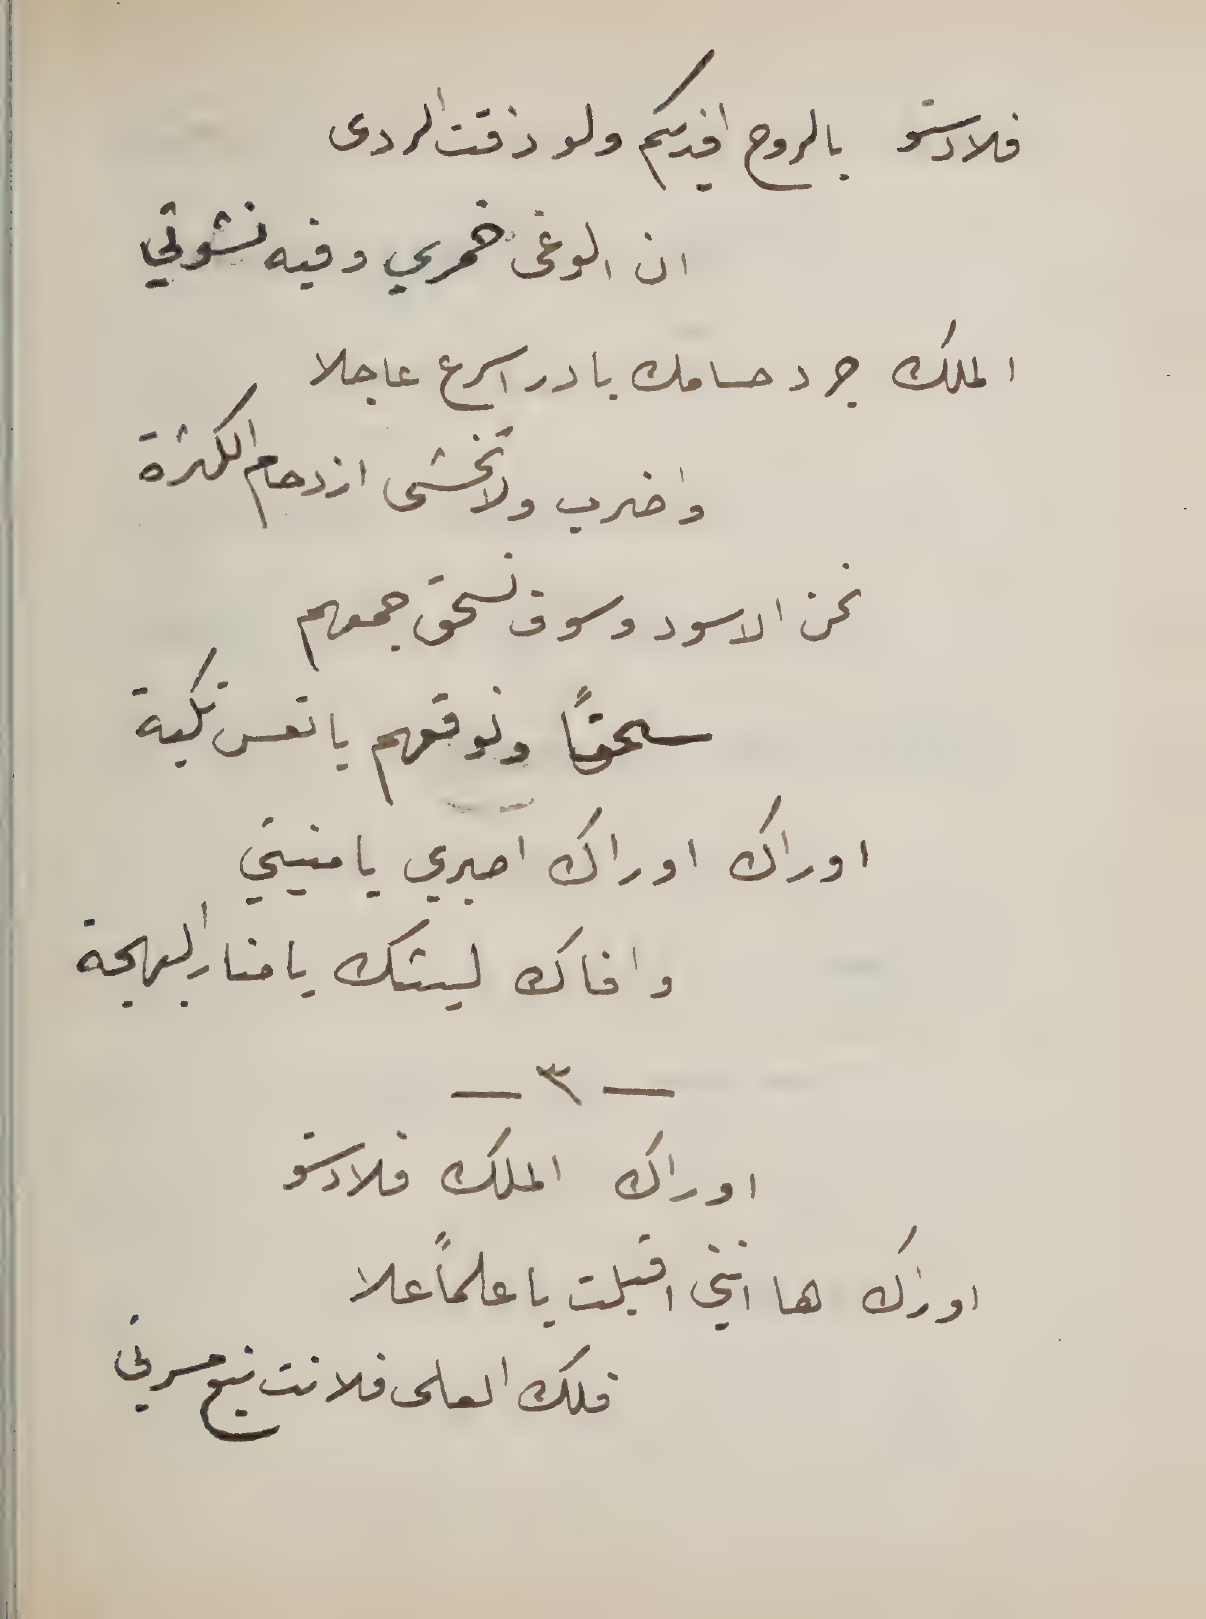 فلادستو بالروح افديكم ولو ذقت الردى
ان الوغى خمري وفيه نشوتي
الملك جرد حسامك بادر اسرع عاجلا
واضرب ولا تخشى ازدحام الكثرة
نحن الاسود وسوف نسحق جمعهم
سحقاً ونوقعهم باتعس نكبة
اوراك اوراك اصبري يا منيتي
وافاك ليثك يا منار البهجة
— ٣ —
اوراك الملك فلادستو
اوراك ها انني اقبلت يا علماً علا
فلك العلى فلانت نبع مسرتي